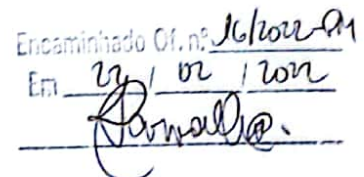 Encaminhado Of. nº 16/2022-PM
Em 22 / 02 / 2022